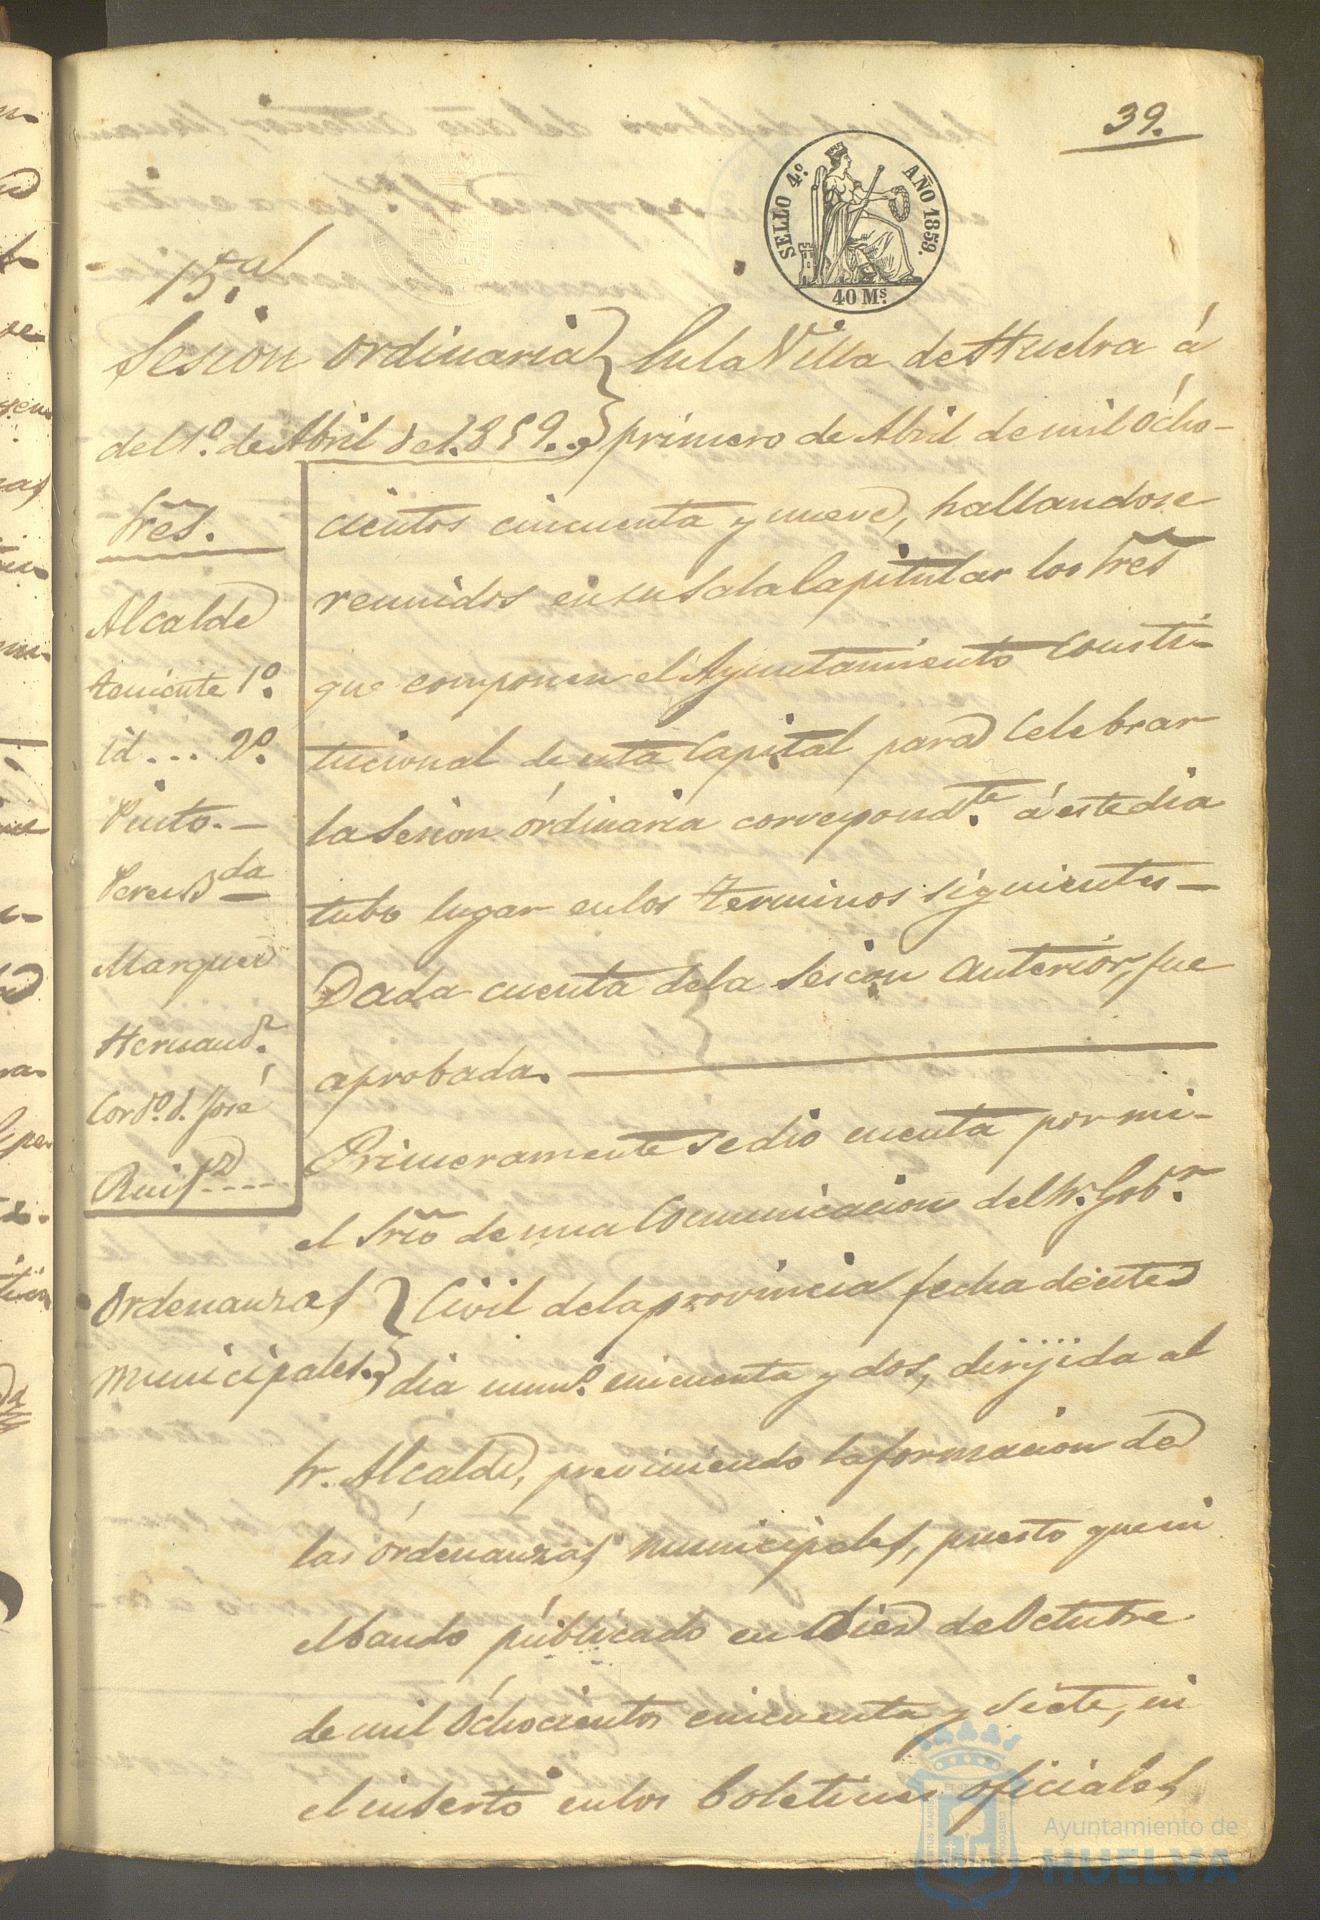 39.
SELLO 4.º AÑO 1859.
40 Ms.
15.ª
Sesion ordinaria
del 1.º de Abril del 1.859.
Sres.
Alcalde
teniente 1.º
id... 2.º
Pinto.
Marquez
Hernandz.
Cordo. d. José
Ruifz....
En la Villa de Huelva á
primero de Abril de mil ócho-
cientos cincuenta y nueve, hallandose
reunidos en su Sala Capitular los Sres
que componen el Ayuntamiento Consti-
tucional de esta Capital para Celebrar
la Sesion órdinaria correspondte. á este dia
tubo lugar en los terminos siguientes—
Dada cuenta de la Sesion anterior, fue
aprobada.
Primeramente se dio cuenta por mi
el Srio de una Comunicacion del Sr. Gobr.
Ordenanzas
municipales.
Civil de la provincia fecha de este
dia numo. cincuenta y dos, dirijida al
Sr. Alcalde, previniendo la formacion de
las órdenanzas municipales, puesto que ni
el bando públicado en Diez de Octubre
de mil óchocientos cincuenta y siete, ni
el inserto en los Boletines oficiales
Ayuntamiento de
HUELVA